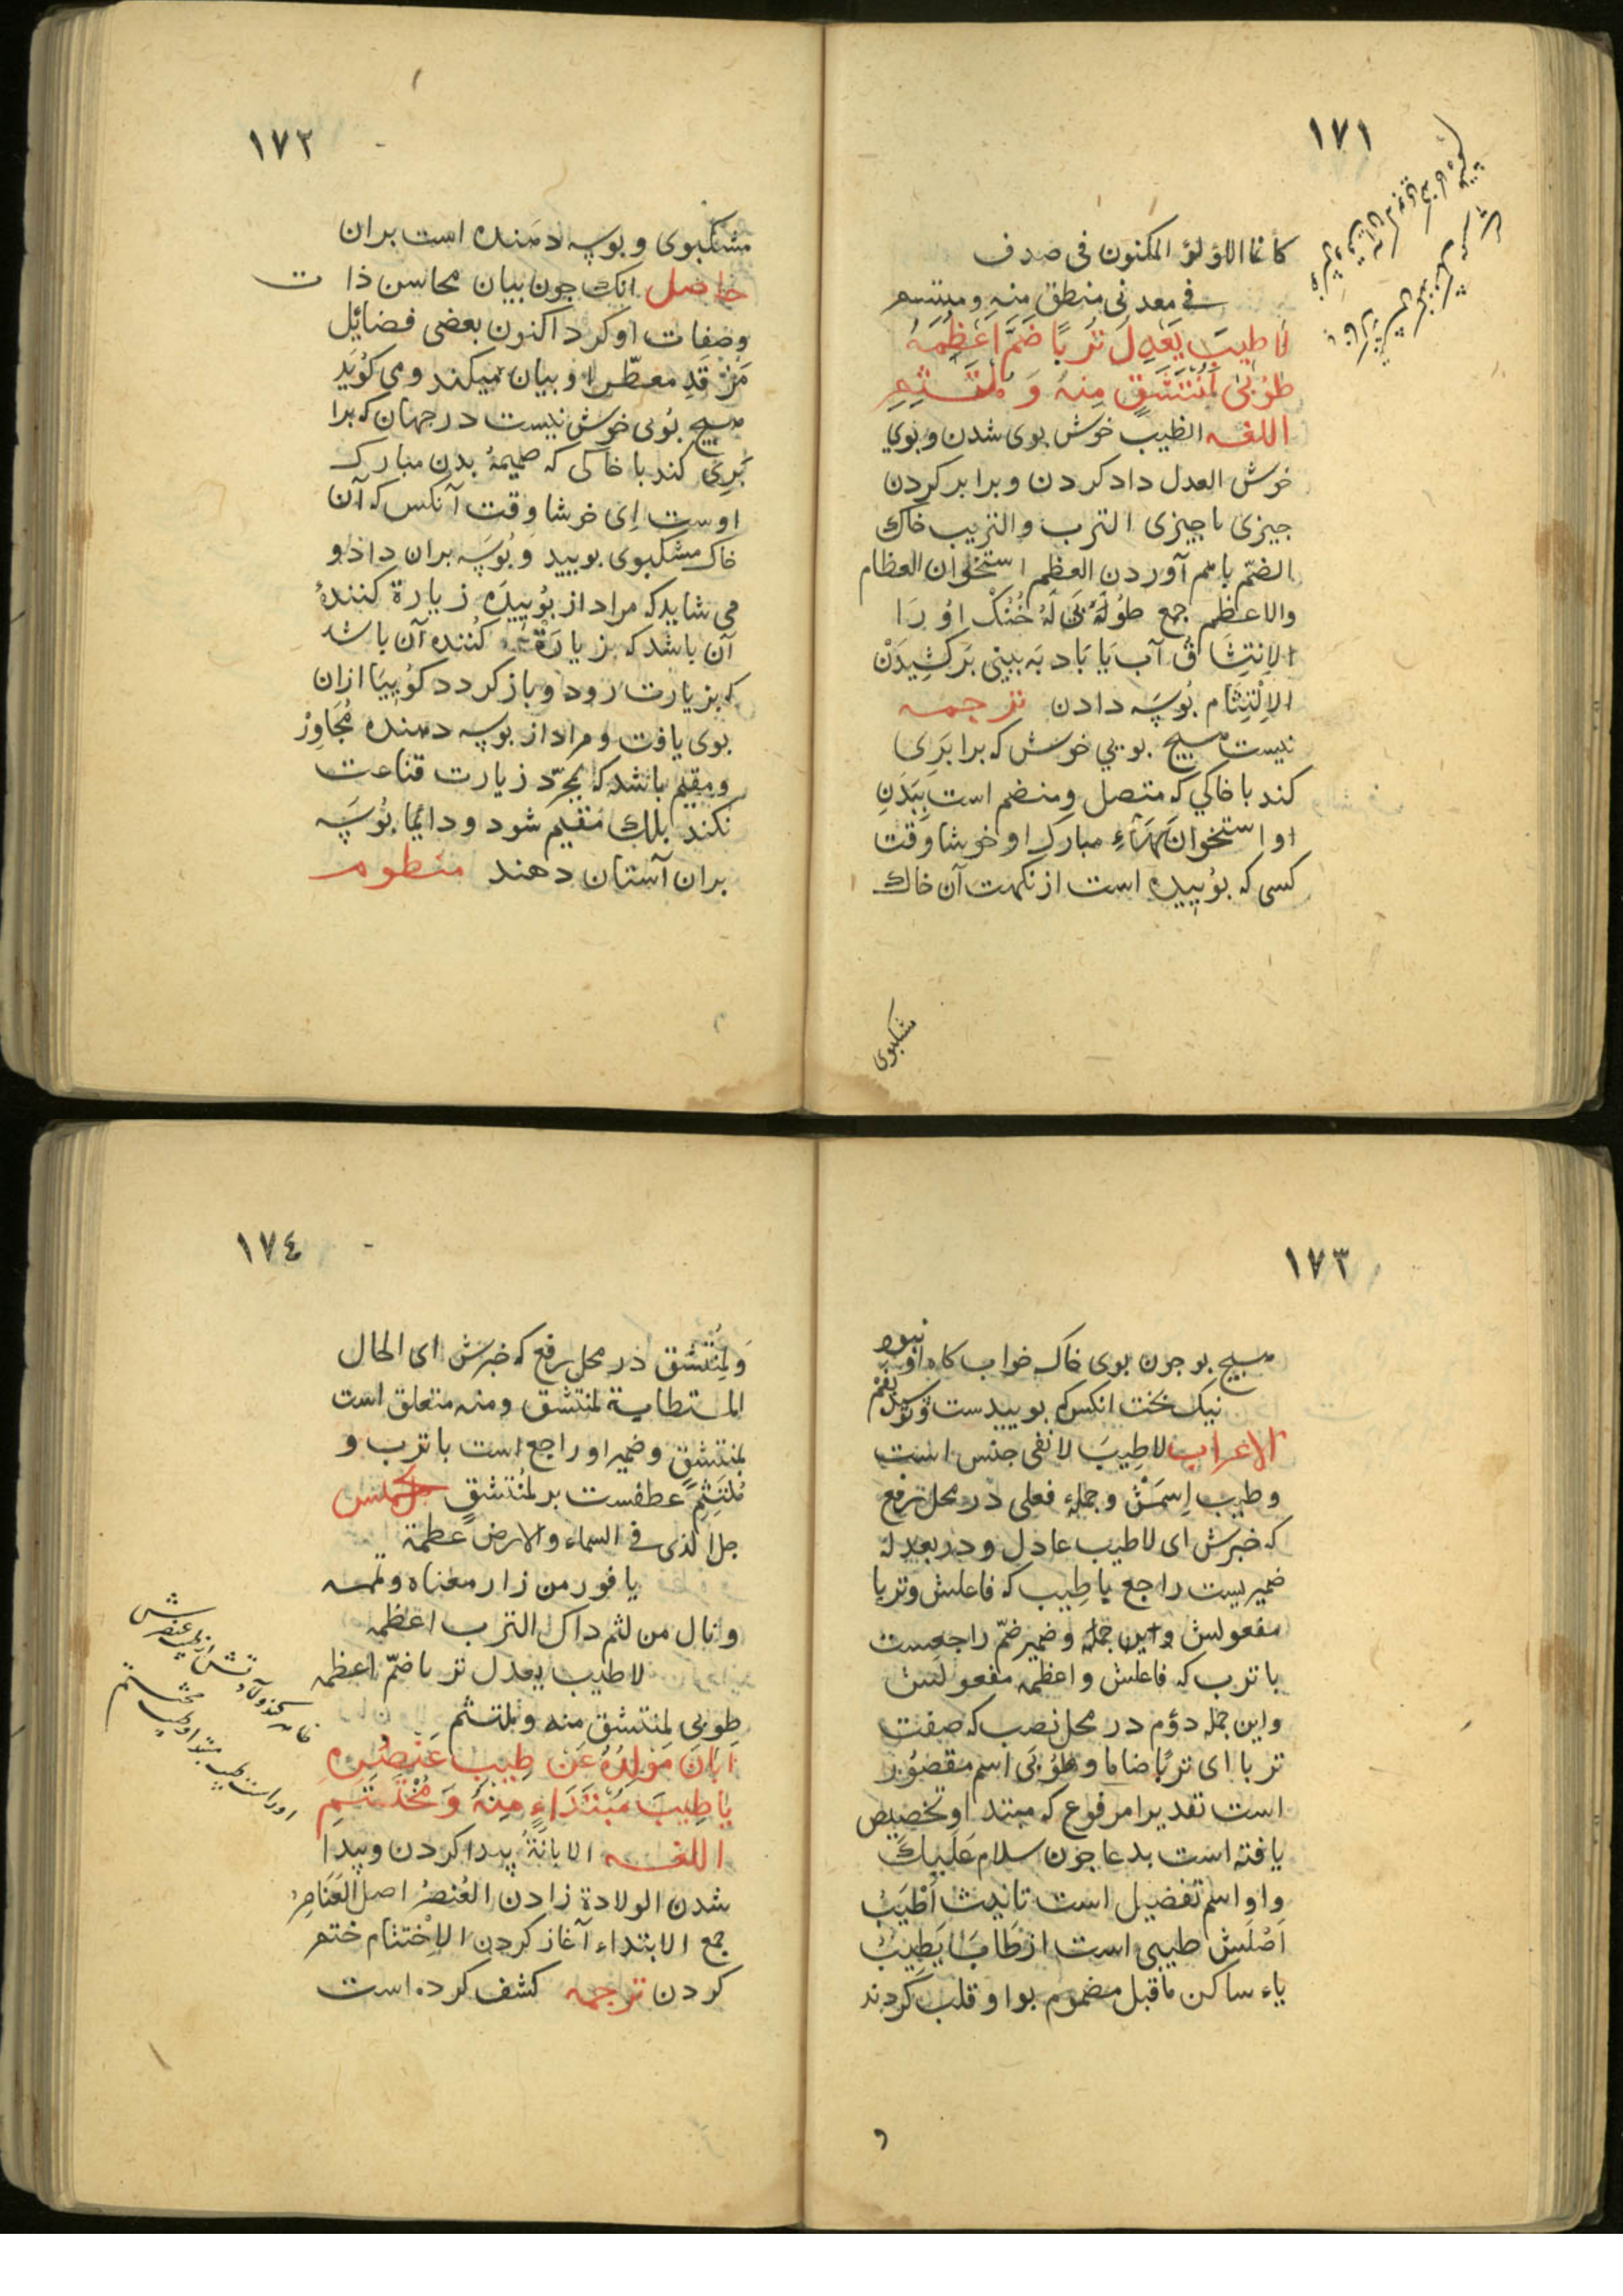 ١٧١
كأنما اللؤلؤ المكنون فى صدف
فى معدنى منطق منه ومبتسم
لَا طِيبَ يَعْدِلُ تُرْبًا ضَمَّ اَعْظُمَهُ
طُوْبٰى لِمُنْتَشِقٍ مِنْهُ وَ مُلْتَثِمِ
اللغه الطیب خوش بوی شدن و بوی
خوش العدل داد كردن و برابر كردن
جیزی با جیزی الترب والتریب خاک
الضم باهم آوردن العظم استخوان العظام
والاعظم جمع طُوْلَهُ بَىٰ لَهُ خُنُكْ اوُ رَا
الاِنتِشَاقُ آب یَا بَاد بَه بینی بَركَشِیدَنْ
الاِلْتِثَام بُوسَه دادن ترجمه
نیست هیچ بویی خوش كه برابَرِی
كند با خاكی كه متصل و منضم است بِبَدَنِ
او استخوان مبارك او خوشا وقت
كسی كه بوُییده است از نكهت آن خاك
شكبوی
١٧٢
مشكبوی و بوسه دهنده است بران
حاصل انك جون بیان محاسن ذات
وصفات او كرد اكنون بعضی فضائل
مَرْقَدِ معطّر او بیان میكند و می كُوَید
هیچ بُوی خوش نیست در جهان كه برا
بَرِی كند با خاكی كه ضمیمهٔ بدن مبارك
اوست اِی خوشا وقت آنكس كه آن
خاك مشكبوی بویید و بُوسَه بران داد و
می شاید كه مراد از بوُییدَه زیارة كنندهٔ
آن باشد كه زیارَة كُننده آن باشد
كه بزیارت رود و باز كردد كوُییَا ازان
بوی یافت و مراد از بوسه دهنده مُجاوِر
ومقیم باشد كه بمجرّد زیارت قناعت
نكند بلك مُقیم شود و دایما بُوسَه
بران آستان دهند منظوم
١٧٣
هیچ بو جون بوی خاك خواب كاه او نبود
نیك بخت انكس كه بوییدست
الاعراب لاطِیبَ لا نفی جنس است
و طیب اِسمَشْ و جمله فعلی در محل رفع
كه خبرش ای لاطیب عادل و در یعدله
ضمیریست راجع با طِیب كه فاعلش و تربا
مفعولش و این جمله و ضمیر ضمّ راجعست
با ترب كه فاعلش و اعظمه مفعولش
واین جمله دؤم در محل نصب كه صفت
تربا ای تربًا ضاما و طُوْبَى اسم مقصُور
است تقدیرا مرفوع كه مبتدا و تخصیص
یافته است بدعا جون سلام عَلَیكَ
واو اسم تفضیل است تانیث اَطْیَبُ
اَصْلَشْ طیبی است از طَابَ یَطِیبُ
یاء ساكن ماقبل مضموم بواو قلب كردند
و
١٧٤
وَلِمُنْتَشِق در محل رفع كه خبرش ای الحال
المستطابة لمنتشق و منه متعلق است
لمنتشق و ضمیر او راجع است با ترب و
مُلْتَثِمِ عطفست بر لمُنتشق
جل الذی فی السماء والارض عظمه
یا فوز من زار مغناه ویمّمه
ونال من لثم ذاك الترب اعظمه
لا طیب یعدل تربا ضمّ اعظمه
طوبى لمنتشق منه وملتثم
اَبَانَ مَوْلِدُهُ عَنْ طِیبِ عُنْصُرِهِ
یَا طِیبَ مُبْتَدَاءٍ مِنْهُ وَ مُخْتَتَمِ
اللغه الابانَةُ پیدا كردن و پیدا
شدن الولادة زادن العُنصُر اصل العَنَاصِرُ
جمع الابتداء آغاز كردن الاِخْتِتَام ختم
كردن ترجمه كشف كرده است